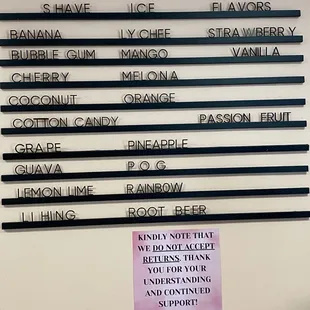 SHAVE ICE FLAVORS
BANANA LYCHEE STRAWBERRY
BUBBLE GUM MANGO VANILLA
CHERRY MELONA
COCONUT ORANGE
COTTON CANDY PASSION FRUIT
GRAPE PINEAPPLE
GUAVA P.O.G
LEMON LIME RAINBOW
LI HING ROOT BEER
KINDLY NOTE THAT
WE DO NOT ACCEPT
RETURNS. THANK
YOU FOR YOUR
UNDERSTANDING
AND CONTINUED
SUPPORT!